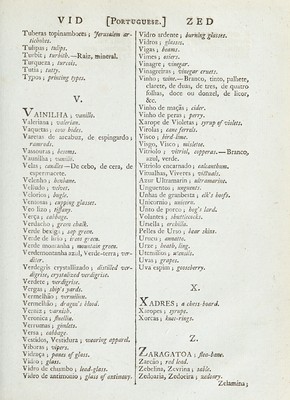 VID [PORTUGUESE.] ZED
Tuberas topinambores; Jerusalem artichokes.
Tulipas; tulips.
Turbit; turbith.—Raiz, mineral.
Turqueza; turcois.
Tutia; tutty.
Typos; printing types.
V.
VAINILHA; vanille.
Valeriana; valerian.
Vaquetas; cow hides.
Varetas de arcabuz, de espingardo;
ramrods.
Vassouras; brooms.
Vaunilha; vanille.
Velas; candles—De cebo, de cera, de
espermacete.
Velenho; henbane.
Veludo; velvet.
Ventosas; cupping glasses.
Veo liso; tiffany.
Verça; cabbage.
Verdacho; green chalk.
Verde bexiga; sap green.
Verde de lirio;
Verde montanha; mountain green.
Verdemontanha azul, Verde-terra; verditer.
Verdegris crystallizado; distilled verdigrise, crystalized verdigrise.
Verdete; verdigrise.
Vergas; ship's yards.
Vermelhão; vermilion.
Vermelhão; dragon's blood.
Verniz; varnish.
Veronica; fluellin.
Verrumas; gimlets.
Versa; cabbage.
Vestidos, Vestidura; wearing apparel.
Viboras; vipers.
Vidraça; panes of glass.
Vidro; glass.
Vidro de chumbo; lead-glass.
Vidro de antimonio; glass of antimony.
Vidro ardente; burning glasses.
Vidros; glasses.
Vigas; beams.
Vimes; osiers.
Vinagre; vinegar.
Vinagreiras; vinegar cruets.
Vinho; wine.—Branco, tinto, palhete,
clarete, de duas, de tres, de quatro
folhas, doce ou donzel, de licor,
&c.
Vinho de maçãs; cider.
Vinho de peras; perry.
Xarope de Violetas; syrup of violets.
Virolas; cane ferrels.
Visco; bird-lime.
Visgo, Visco; misletoe.
Vitriolo; vitriol, copperas.—Branco,
azul, verde.
Vitriolo encarnado; calcanthum.
Vitualhas, Viveres; victuals.
Azur Ultramarin; ultramarine.
Unguentos; unguents.
Unhas de granbesta; elk's hoofs.
Unicornio; unicorn.
Unto de porco; hog's lard.
Volantes; shuttlecocks.
Ursella; orchilla.
Pelles de Urso; bear skins.
Urucu; annotto.
Urze; heath, ling.
Utensilios; utensils.
Uvas; grapes.
Uva espim; gooseberry.
X.
XADRES; a chess-board.
Xaropes; syrups.
Xorcas; knee-rings.
Z.
ZARAGATOA; flea-bane.
Zarcão; red lead.
Zebelina, Zevrina; sable.
Zedoaria, Zedoeira; zedoary.
Zelamina;